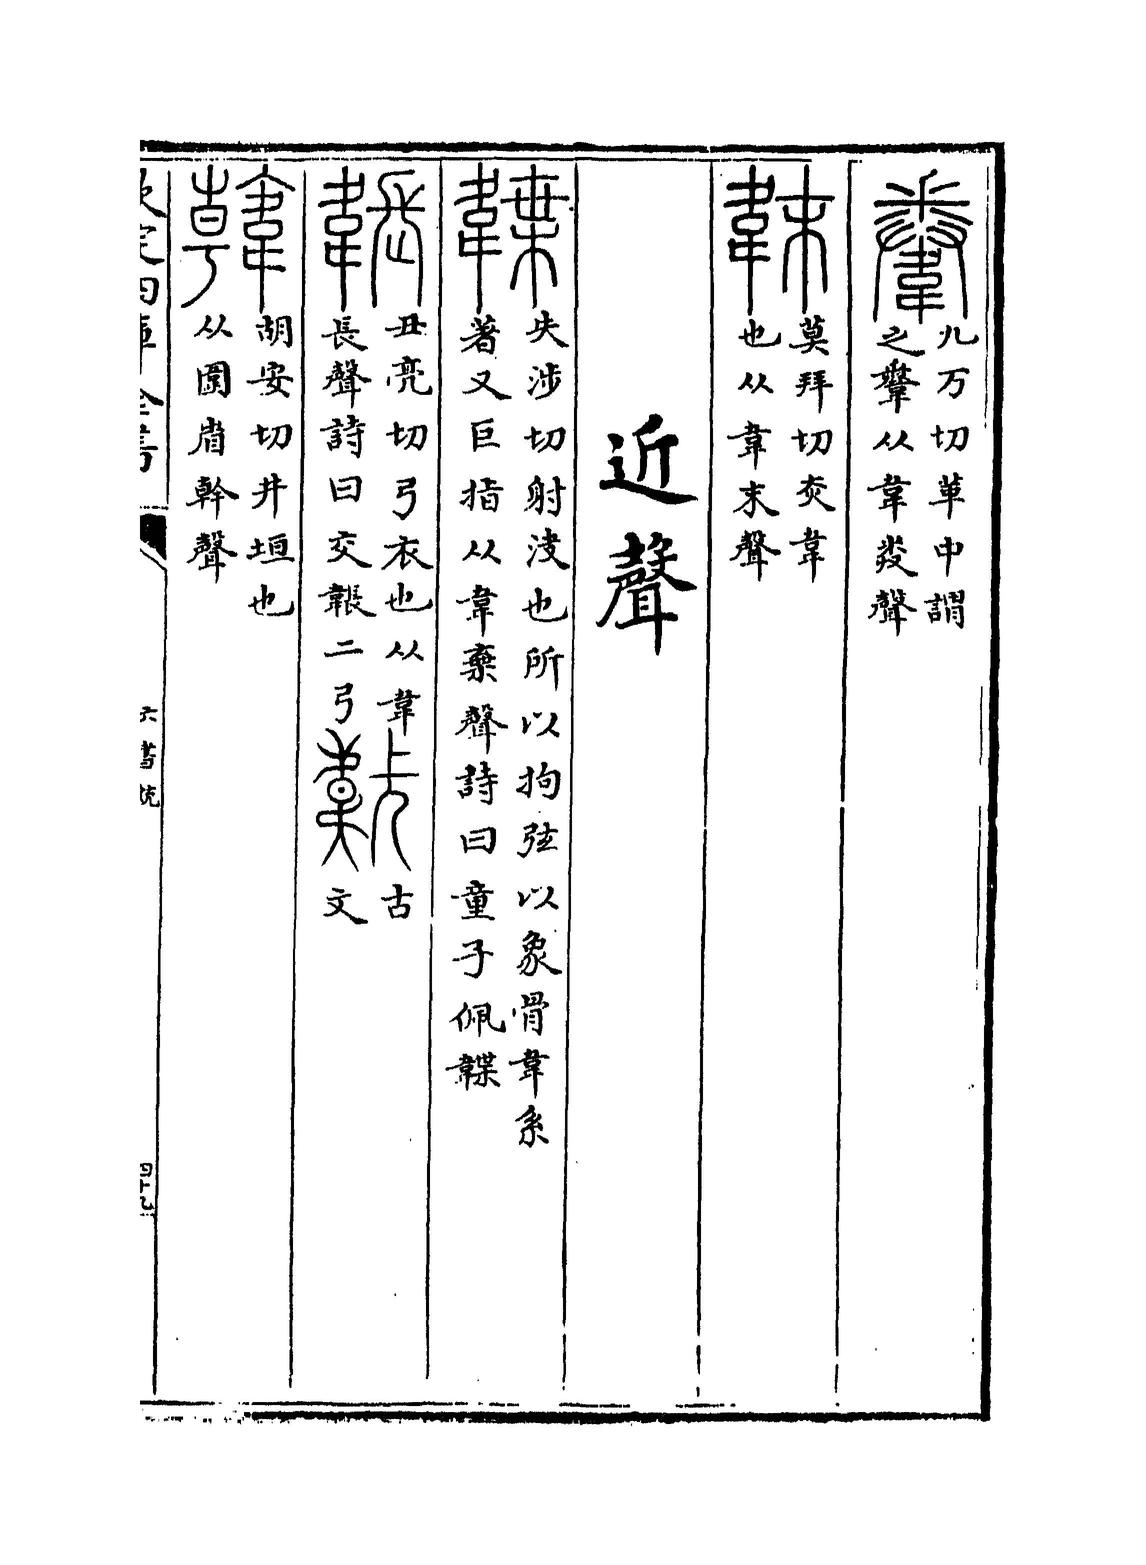 韏
九万切革中謂
之韏从韋𢍏聲
韎
莫拜切炗韋
也从韋末聲
近聲
韘
失涉切射決也所以拘弦以象骨韋系
著又巨指从韋枼聲詩曰童子佩韘
韔
丑亮切弓衣也从韋
長聲詩曰交韔二弓
古
文
韓
胡安切井垣也
从圍省幹聲
欽定四庫全書
六書統
四十九